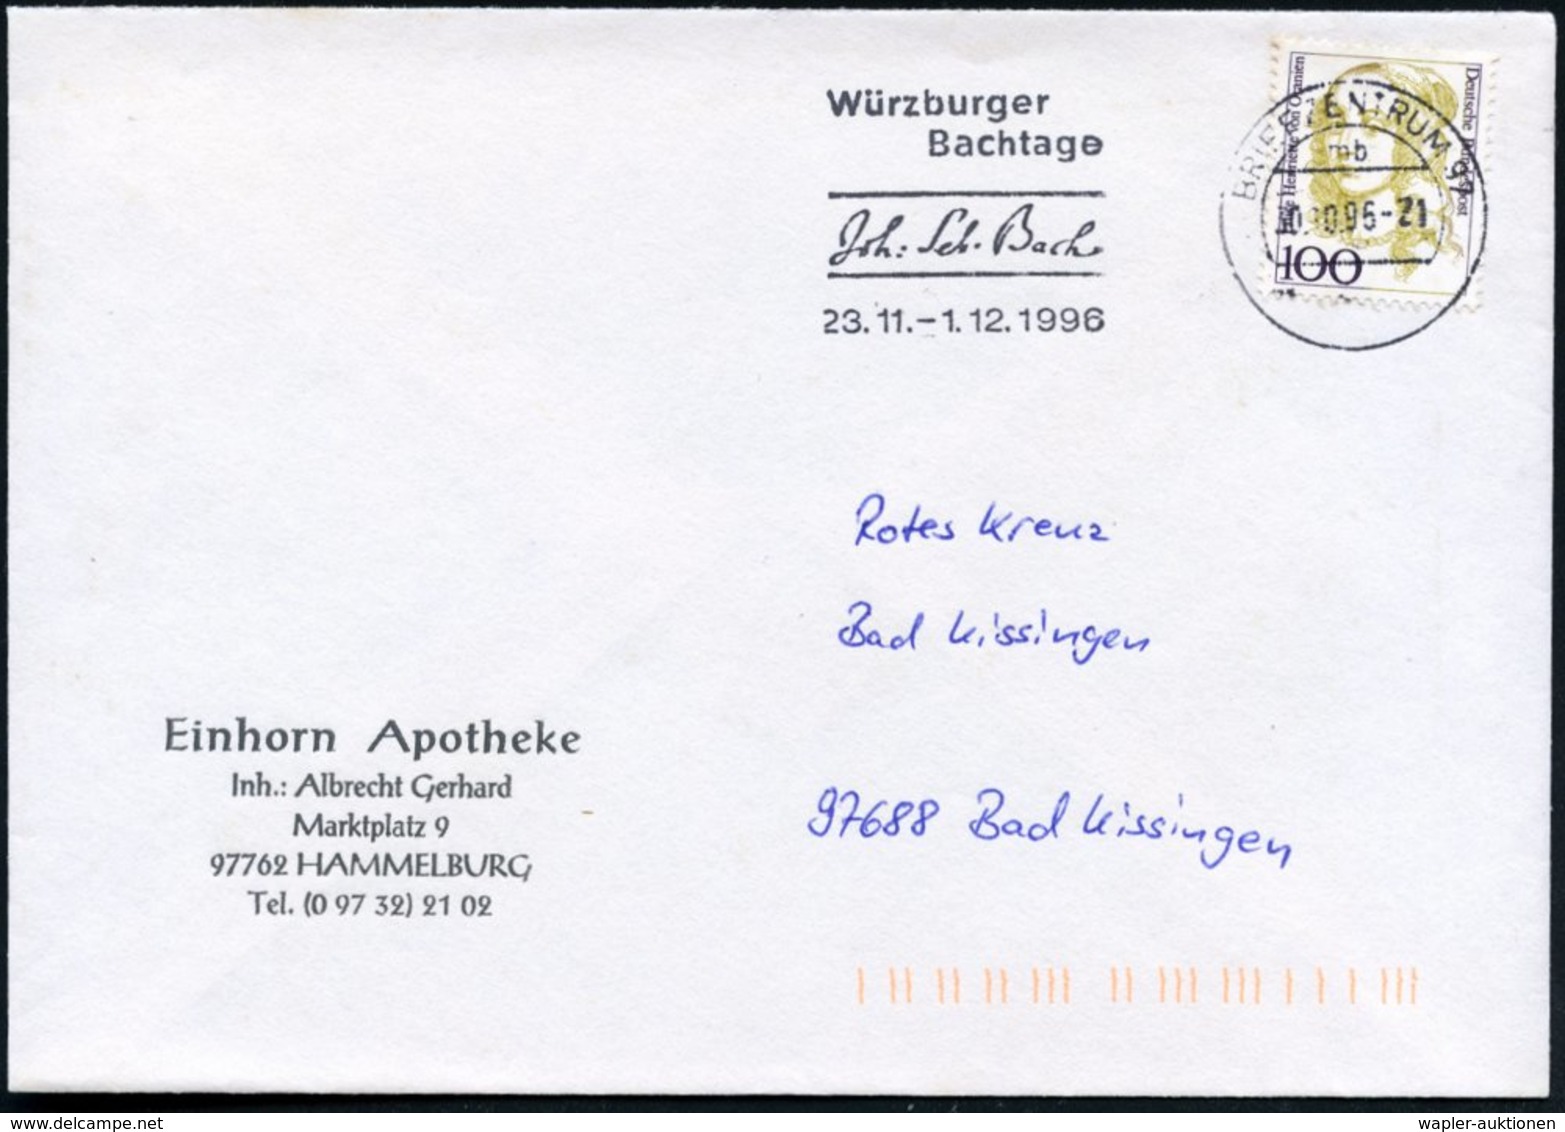 Würzburger
Bachtage
Joh: Seb. Bach
23.11.-1.12.1996
BRIEFZENTRUM 97
mb
96-21
Henriette von Oranien
Deutsche Bundespost
100
Rotes Kreuz
Bad Kissingen
97688 Bad Kissingen
Einhorn Apotheke
Inh.: Albrecht Gerhard
Marktplatz 9
97762 HAMMELBURG
Tel. (0 97 32) 21 02
delcampe.net
wapler-auktionen